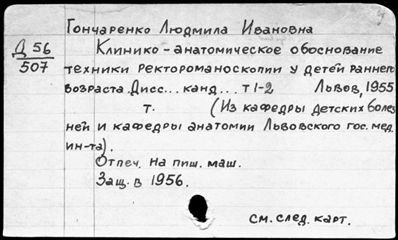 Гончаренко Людмила Ивановна
Д 56
507
Клинико-анатомическое обоснование
техники ректороманоскопии у детей раннего
возраста. Дисс... канд... т 1-2 Львов, 1955
т. (Из кафедры детских болез
ней и кафедры анатомии Львовского гос. мед.
ин-та).
Отпеч. на пиш. маш.
Защ. в 1956.
см. след. карт.